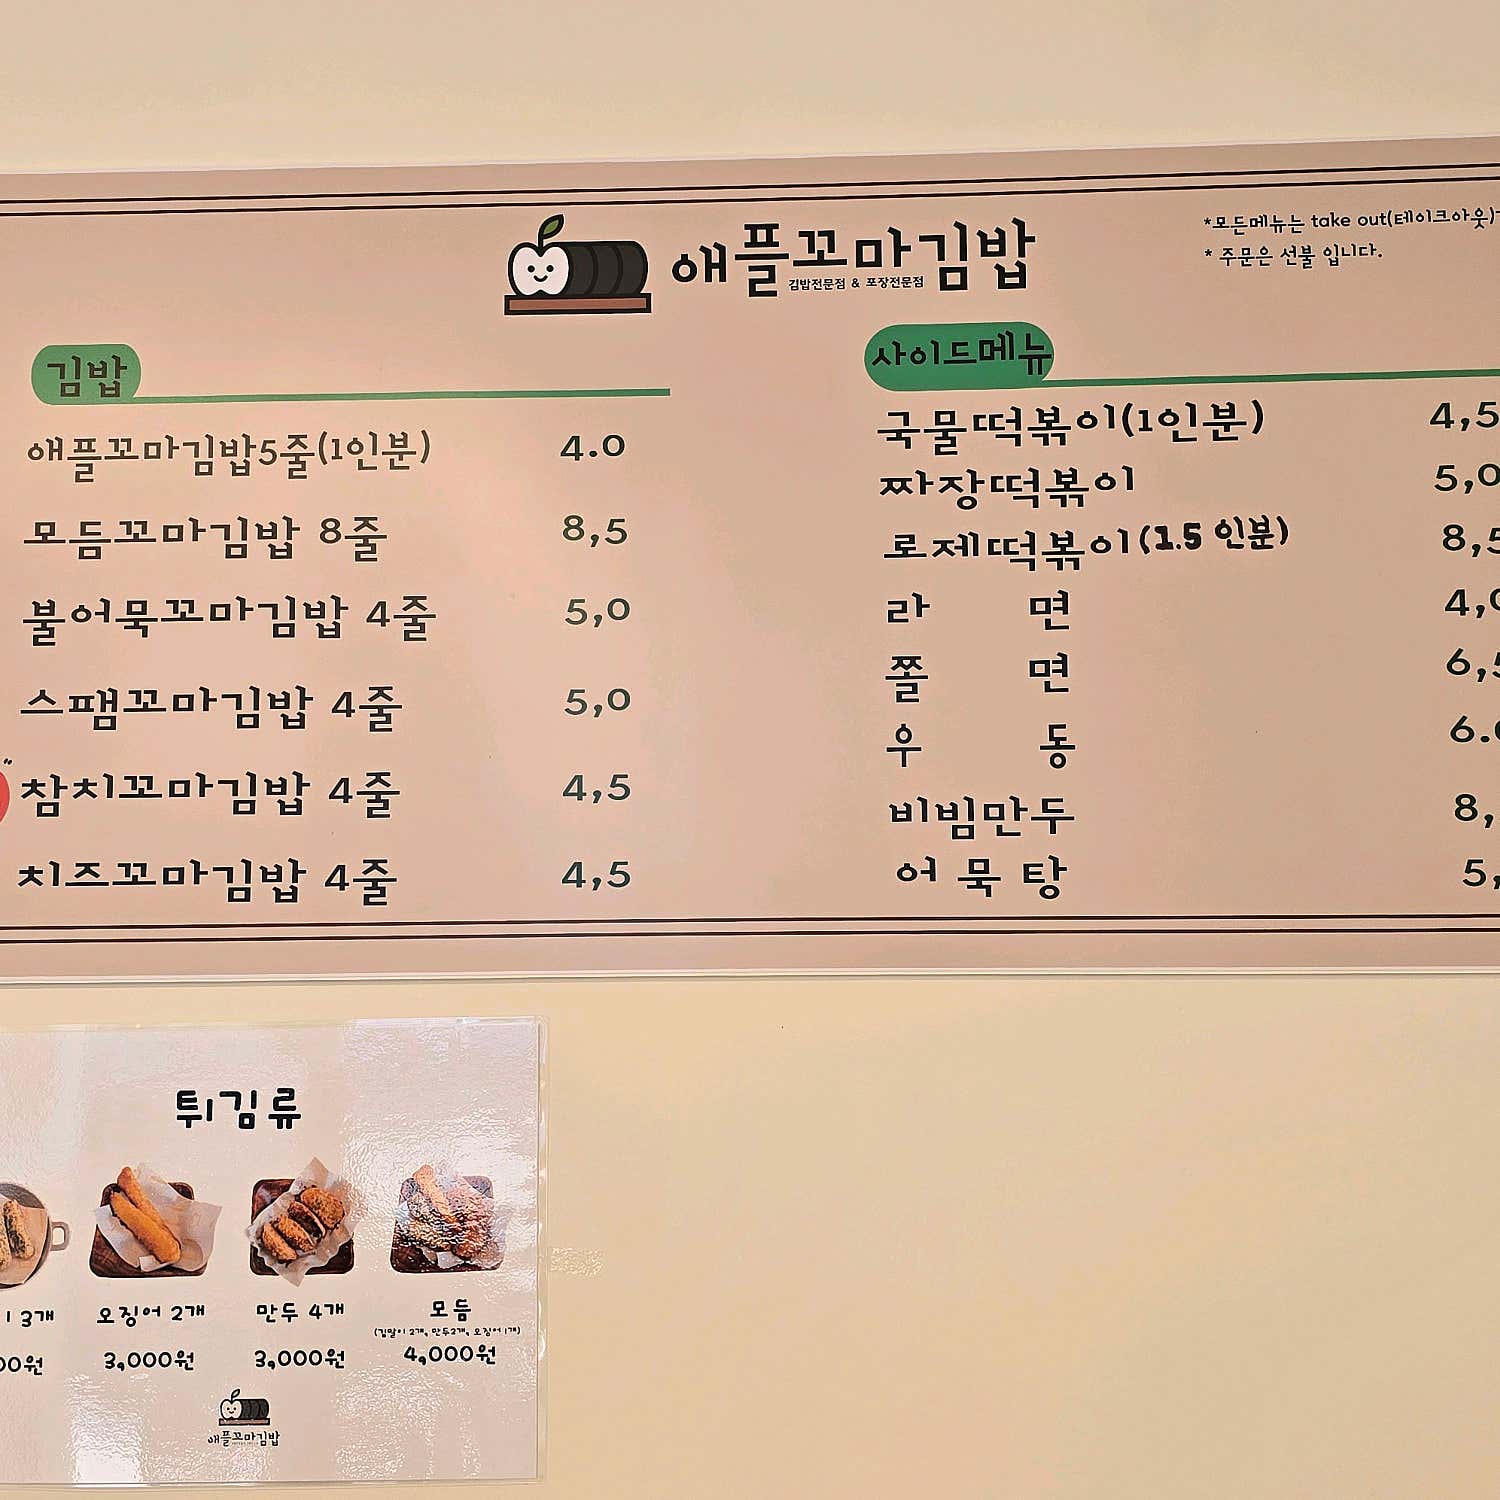 애플꼬마김밥
김밥전문점 & 포장전문점
*모든메뉴는 take out(테이크아웃)
* 주문은 선불 입니다.
김밥
애플꼬마김밥5줄(1인분) 4.0
모듬꼬마김밥 8줄 8,5
불어묵꼬마김밥 4줄 5,0
스팸꼬마김밥 4줄 5,0
참치꼬마김밥 4줄 4,5
치즈꼬마김밥 4줄 4,5
사이드메뉴
국물떡볶이(1인분) 4,5
짜장떡볶이 5,0
로제떡볶이(1.5 인분) 8,5
라 면 4,0
쫄 면 6,5
우 동 6.0
비빔만두 8,
어 묵 탕 5,
튀김류
이 3개
00원
오징어 2개
3,000원
만두 4개
3,000원
모듬
(김말이 2개, 만두2개, 오징어 1개)
4,000원
애플꼬마김밥